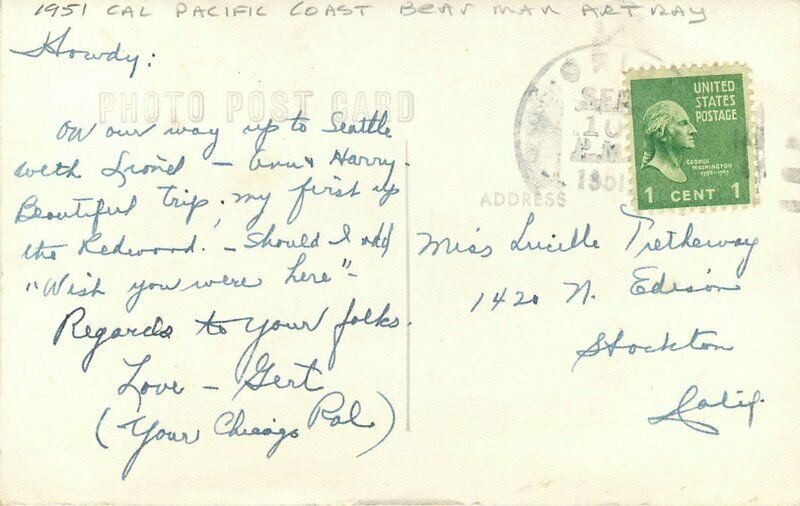 1951 CAL PACIFIC COAST BEAR MAN ART RAY
Howdy:
PHOTO POST CARD
On our way up to Seattle
with Lionel – Ann & Harry.
Beautiful Trip, my first up
the Redwood. – Should I add
"Wish you were here" –
Regards to your folks.
Love – Gert
(Your Chicago Pal)
SEP
10
P.M.
1951
UNITED
STATES
POSTAGE
GEORGE
WASHINGTON
1789-1797
1 CENT 1
ADDRESS
Miss Lucille Tretheway
1420 N. Edison
Stockton
Calif.